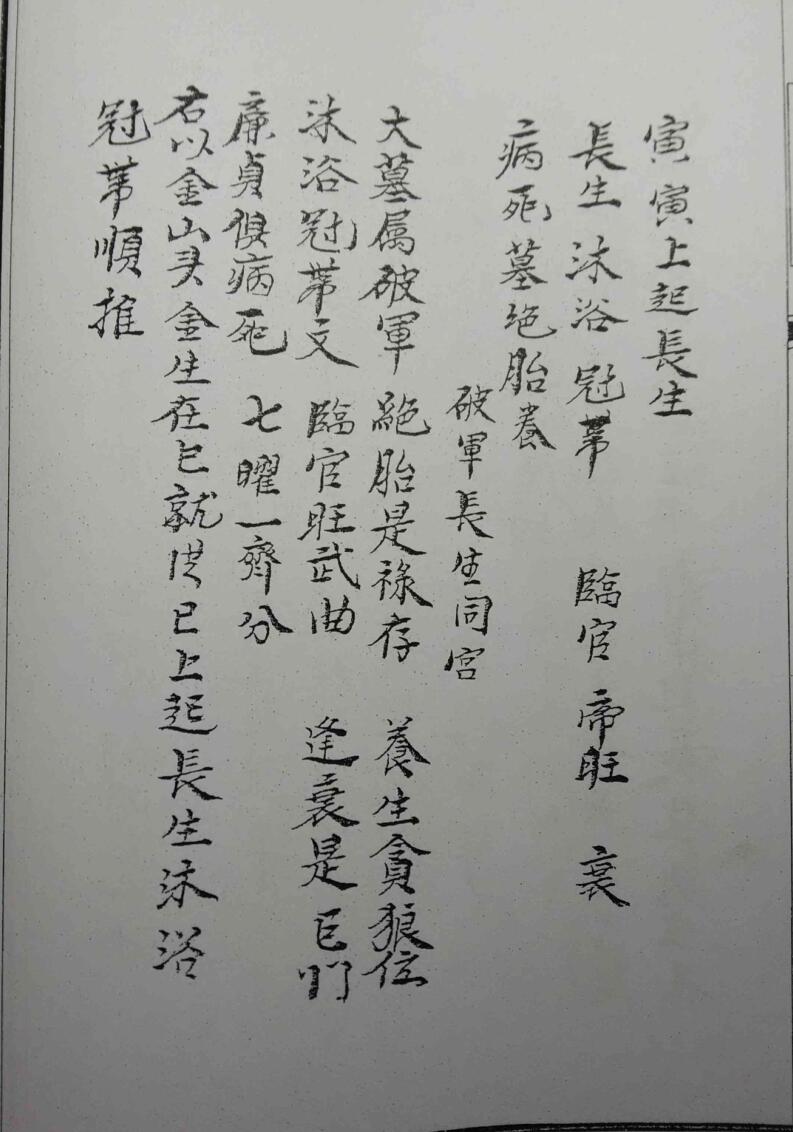 寅寅上起長生
長生 沐浴 冠帶 臨官 帝旺 衰
病死墓绝胎養
破軍長生同宫
大墓属破軍 絕胎是祿存 養生貪狼位
沐浴冠帶文 臨官旺武曲 逢衰是巨門
廉貞俱病死 七曜一齊分
右以金山头金生在巳就從巳上起長生沐浴
冠帶順推